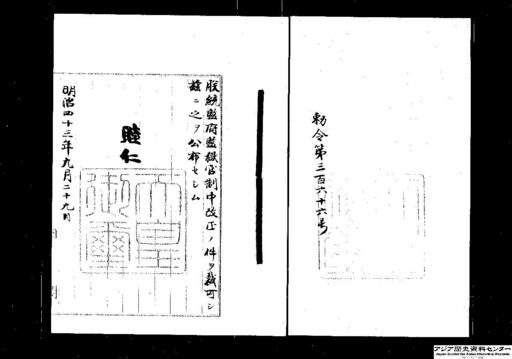 勅令第三百六十六号
朕統監府監獄官制中改正ノ件ヲ裁可シ
茲ニ之ヲ公布セシム
睦仁
天皇
御璽
明治四十三年九月二十九日
アジア歴史資料センター
Japan Center for Asian Historical Records